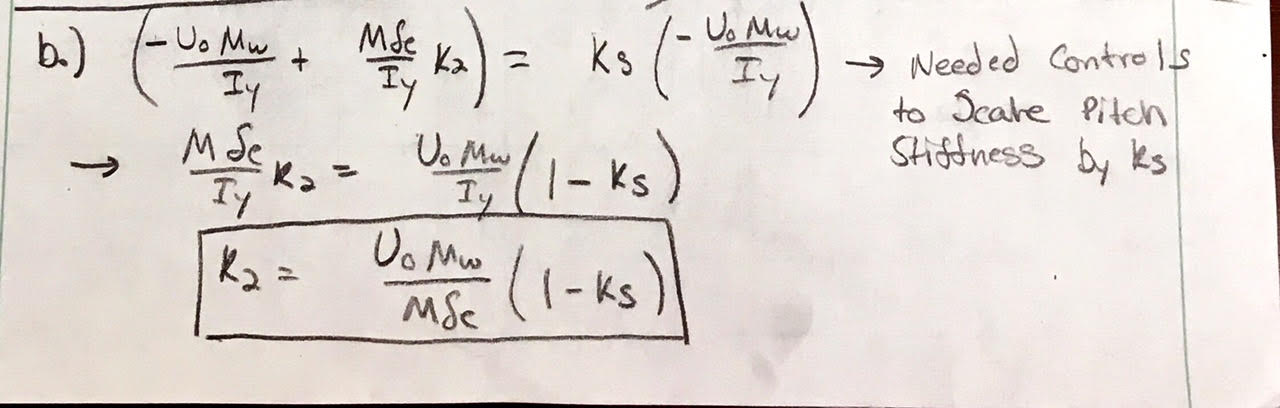 b.) (-U₀Mw/Iy + Mδe/Iy K₂) = Ks (-U₀Mw/Iy) → Needed Controls
to Scale Pitch
Stiffness by ks
→ Mδe/Iy K₂ = U₀Mw/Iy (1 - Ks)
K₂ = U₀Mw/Mδe (1 - Ks)